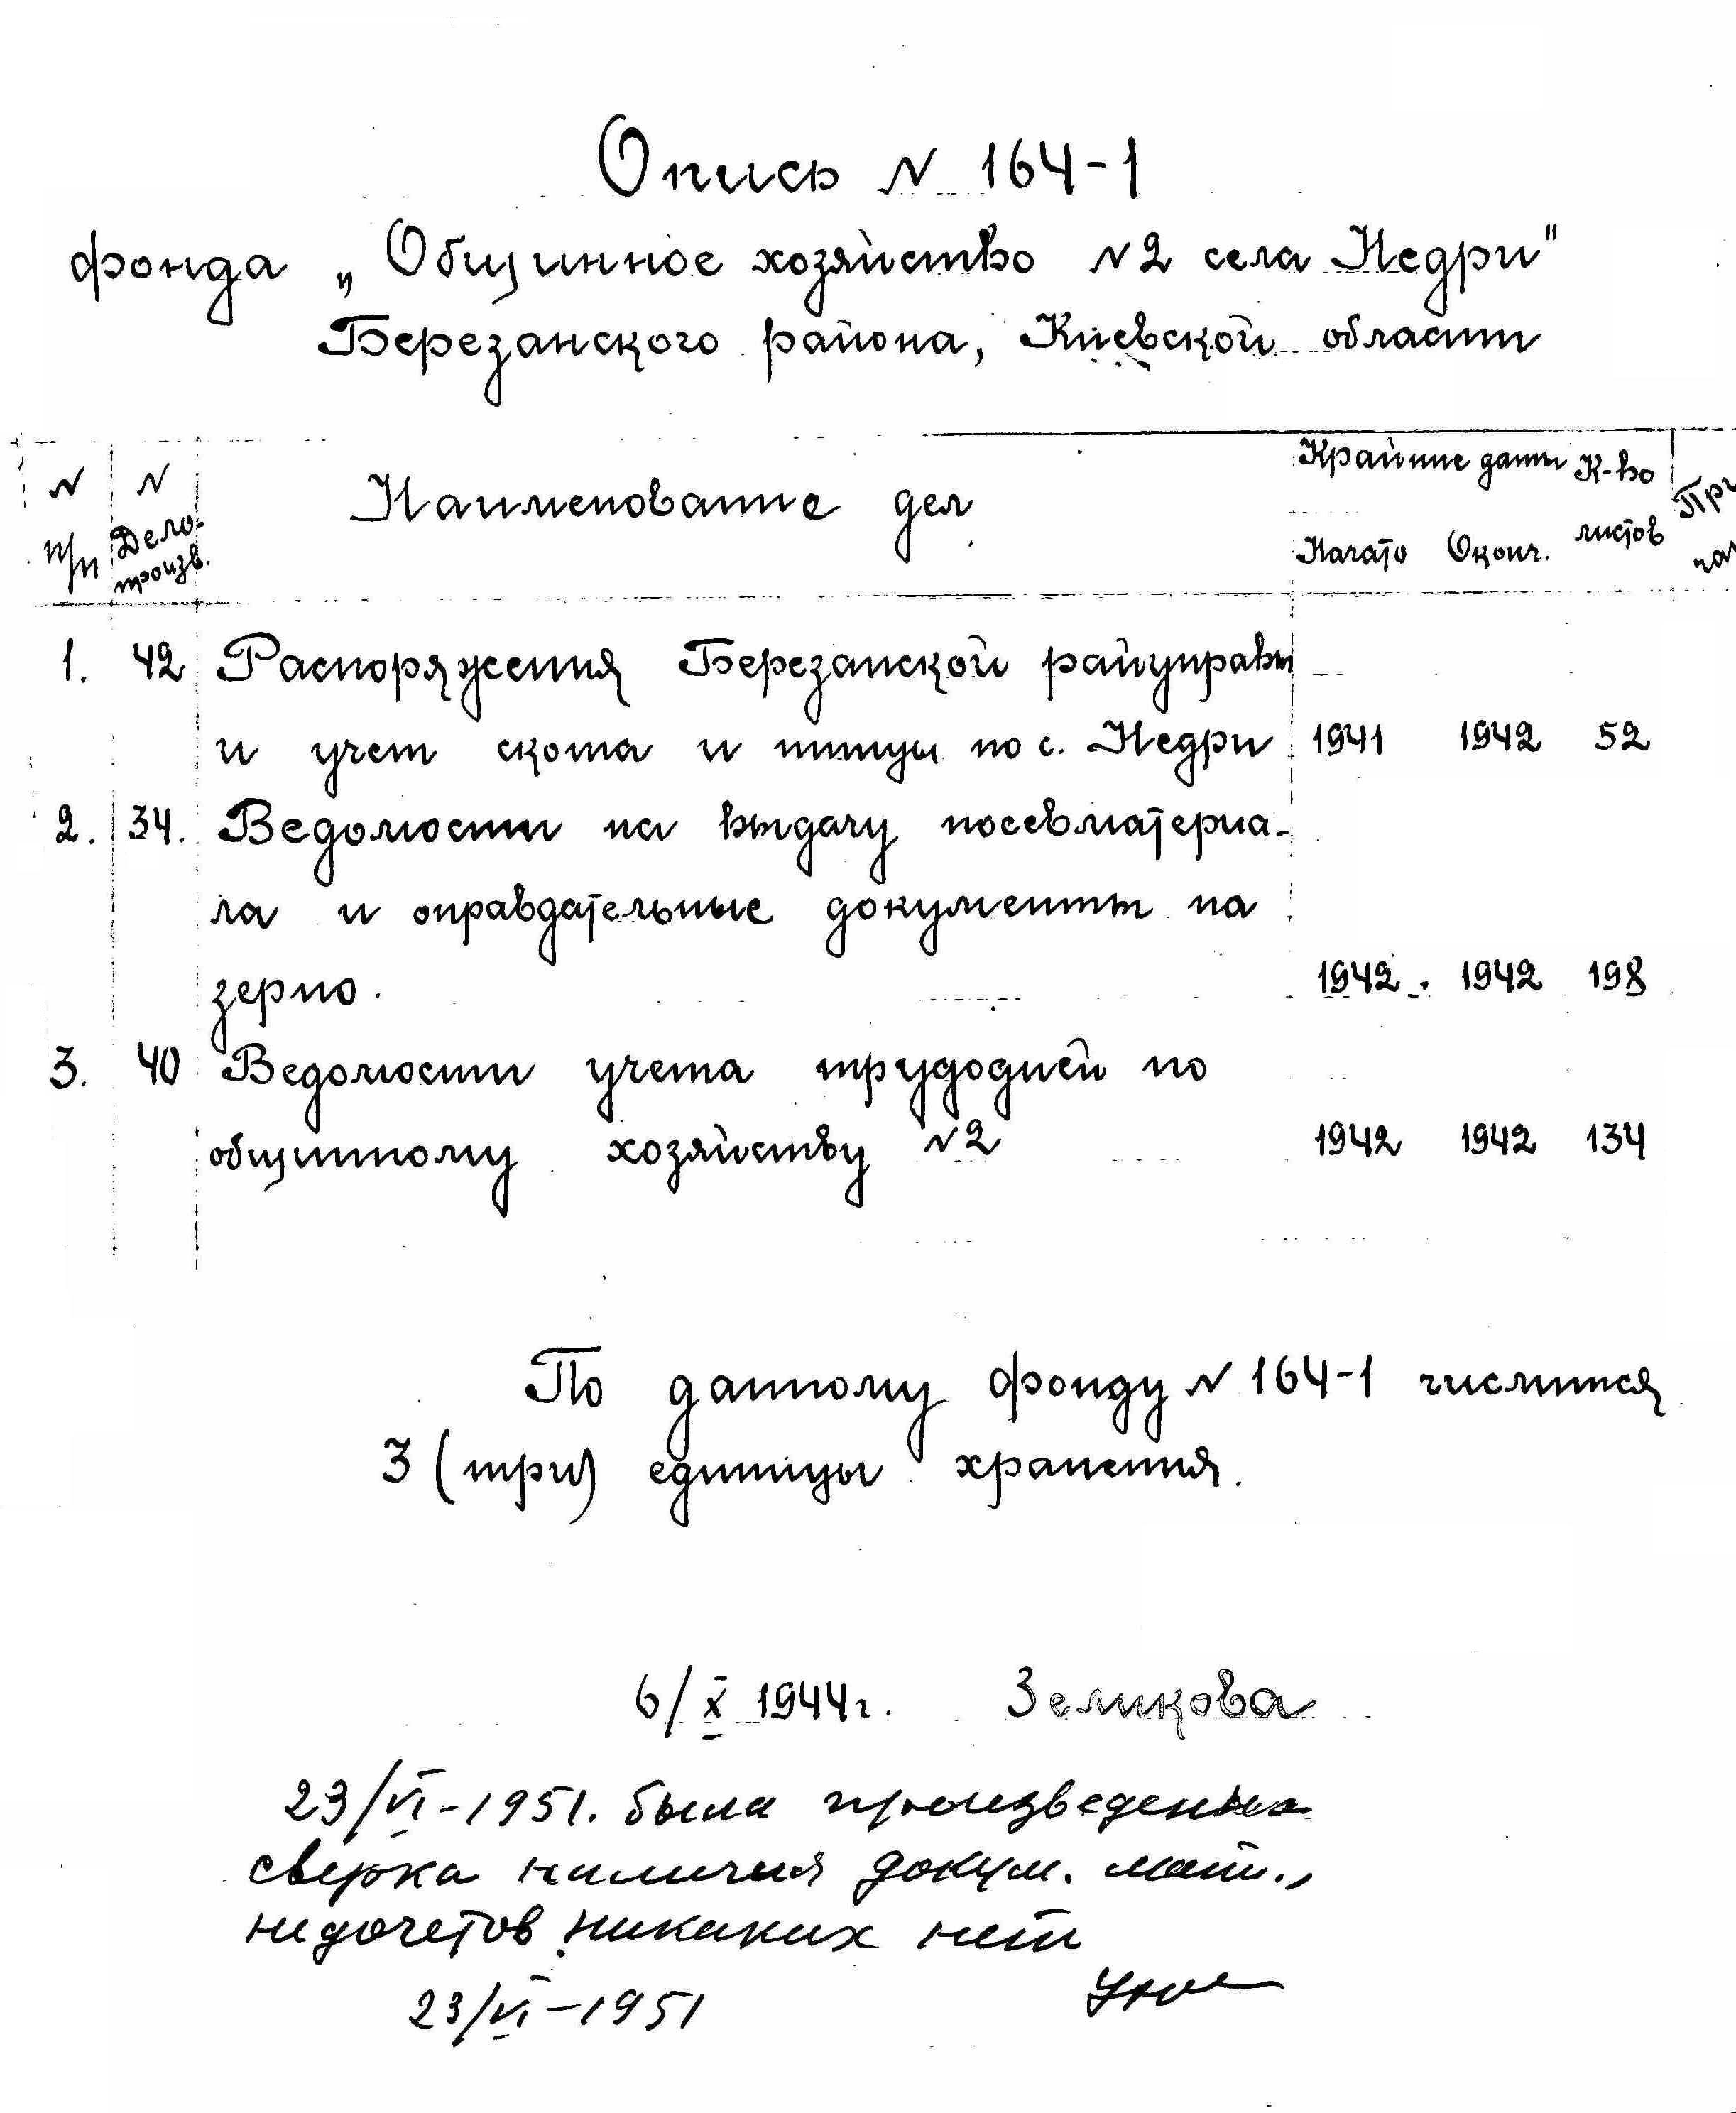 Опись N 164-1
фонда „Общинное хозяйство N2 села Недри"
Березанского района, Киевской области
N п/п N Дело-произв. Наименование дел Крайние даты Начато Оконч. К-во листов
1. 42 Распоряжения Березанской райуправы
и учет скота и птицы по с. Недри 1941 1942 52
2. 34. Ведомости на выдачу посевматериа-
ла и оправдательные документы на
зерно. 1942. 1942 198
3. 40 Ведомости учета трудодней по
общинному хозяйству N2 1942 1942 134
По данному фонду N 164-1 числится
3 (три) единицы хранения.
6/X 1944г. Зеликова
23/VI-1951. была произведенна
сверка наличия докум. мат.,
недочетов никаких нет
23/VI-1951